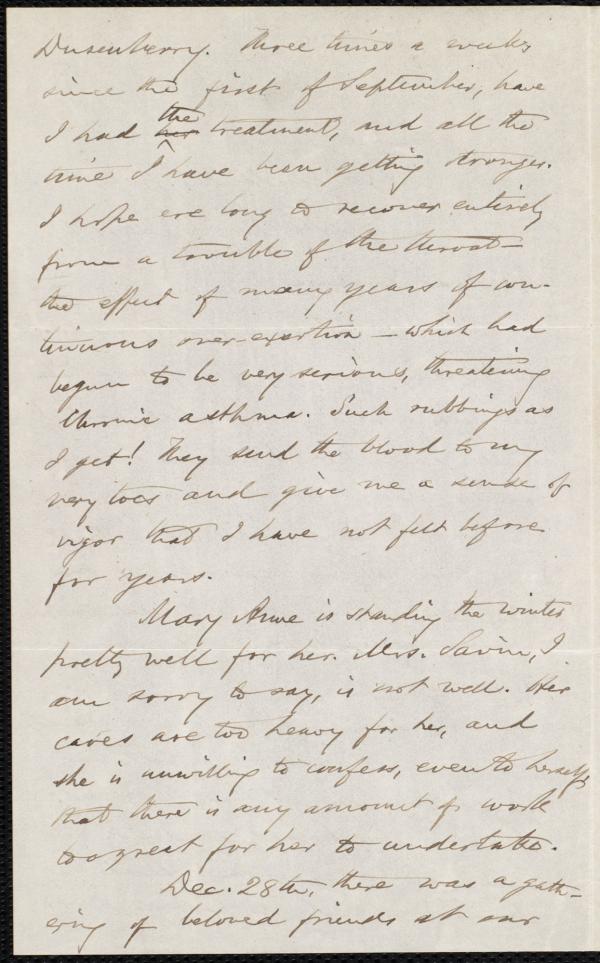 Dusenberry. Three times a week,
since the first of September, have
I had the her treatment, and all the
time I have been getting stronger.
I hope ere long to recover entirely
from a trouble of the throat—
the effect of many years of con-
tinuous over-exertion — which had
begun to be very serious, threatening
chronic asthma. Such rubbings as
I get! They send the blood to my
very toes and give me a sense of
vigor that I have not felt before
for years.
Mary Anne is standing the winter
pretty well for her. Mrs. Savin, I
am sorry to say, is not well. Her
cares are too heavy for her, and
she is unwilling to confess, even to herself,
that there is any amount of work
too great for her to undertake.
Dec. 28th, there was a gath-
ering of beloved friends at our